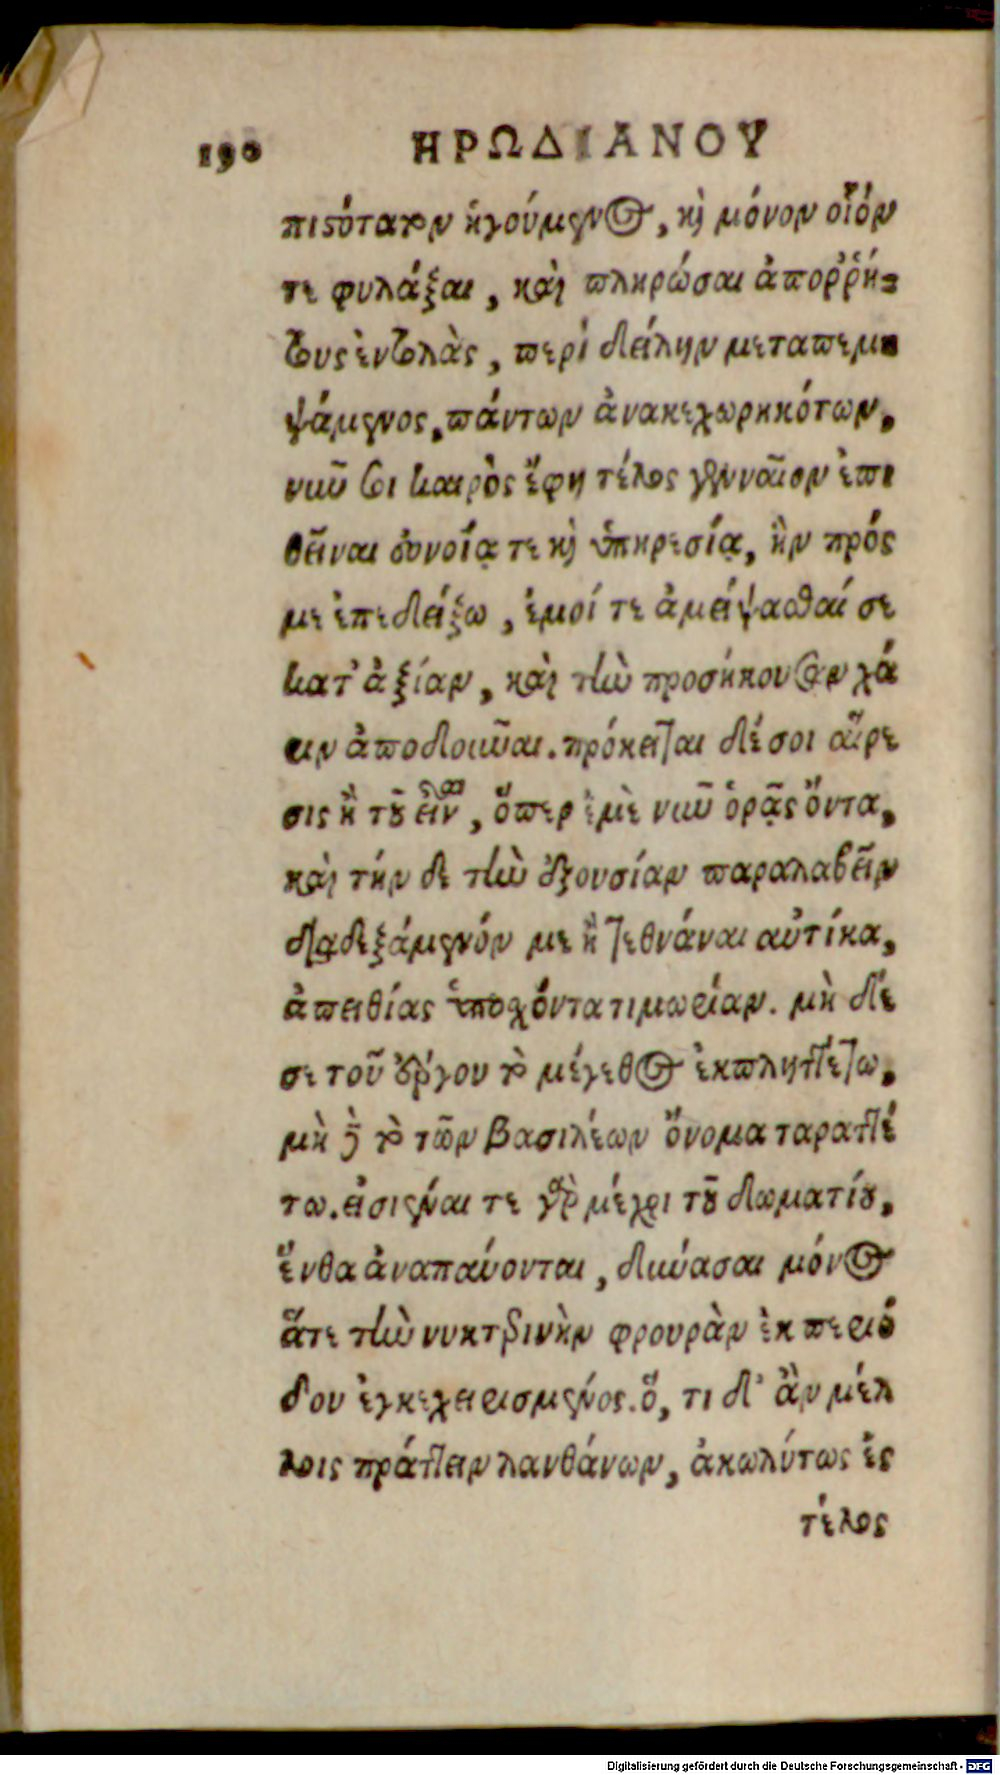 190 ΗΡΩΔΙΑΝΟΥ
πιστότατον ἡγούμενος, καὶ μόνον οἷόν
τε φυλάξαι, καὶ πληρῶσαι ἀποῤῥή-
τους ἐντολὰς, περὶ δείλην μεταπεμ-
ψάμενος, πάντων ἀνακεχωρηκότων,
νῦν σοι καιρὸς ἔφη τέλος γενναῖον ἐπι
θεῖναι εὐνοίᾳ τε καὶ ὑπηρεσίᾳ, ἣν πρός
με ἐπεδείξω, ἐμοί τε ἀμείψασθαί σε
κατ' ἀξίαν, καὶ τὴν προσήκουσαν χά
ριν ἀποδοῦναι. πρόκειται δέ σοι αἵρε
σις ἢ τοῦ εἶναι, ὅπερ ἐμὲ νῦν ὁρᾷς ὄντα,
καὶ τήν δε τὴν ἐξουσίαν παραλαβεῖν
διαδεξάμενόν με ἢ τεθνάναι αὐτίκα,
ἀπειθίας ὑποχόντα τιμωρίαν. μὴ δέ
σε τοῦ ἔργου τὸ μέγεθος ἐκπληττέτω,
μὴ δὲ τὸ τῶν βασιλέων ὄνομα ταραττέ
τω. εἰσιέναι τε γὰρ μέχρι τοῦ δωματίου,
ἔνθα ἀναπαύονται, δύνασαι μόνος
ἅτε τὴν νυκτερινὴν φρουρὰν ἐκ περιό
δου ἐγκεχειρισμένος. ὅ, τι δ' ἂν μέλ
λοις πράττειν λανθάνων, ἀκωλύτως ἐς
τέλος
Digitalisierung gefördert durch die Deutsche Forschungsgemeinschaft - DFG